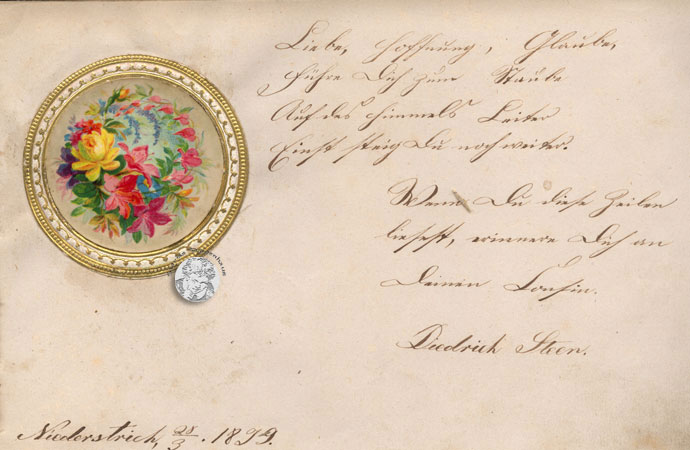 Liebe, Hoffnung, Glaube,
Führe Dich zum Staube
Auf des Himmels Leiter
Einst steig Du noch weiter.
Wenn Du diese Zeilen
liesest, erinnere Dich an
Deinen Cousin.
Diedrich Steen.
Niederstrich, 28/3. 1899.